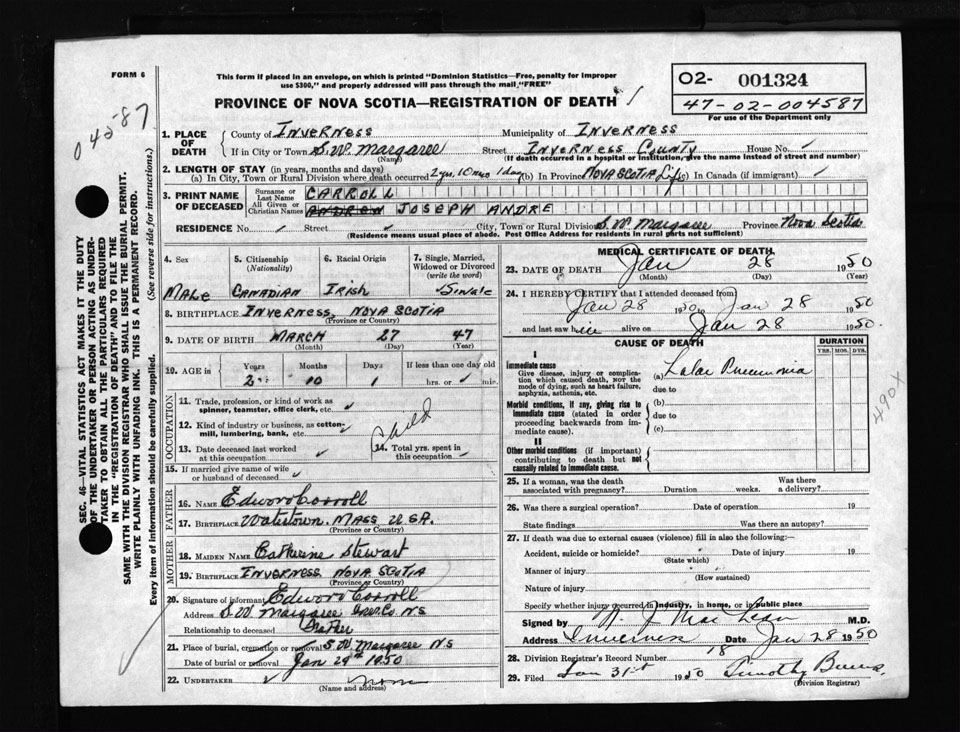 FORM 6
This form if placed in an envelope, on which is printed "Dominion Statistics—Free, penalty for improper
use $300," and properly addressed will pass through the mail, "FREE"
O2- 001324
47-02-004587
For use of the Department only
PROVINCE OF NOVA SCOTIA—REGISTRATION OF DEATH
04587
1. PLACE OF DEATH
County of INVERNESS Municipality of INVERNESS
If in City or Town S.W. Margaree (Name) Street INVERNESS COUNTY House No.
(If death occurred in a hospital or institution, give the name instead of street and number)
2. LENGTH OF STAY (in years, months and days)
(a) In City, Town or Rural Division where death occurred 2 yrs, 10 mos 1 day (b) In Province NOVA SCOTIA Life (c) In Canada (if immigrant)
3. PRINT NAME OF DECEASED
Surname or Last Name CARROLL
All Given or Christian Names ANDREW JOSEPH ANDRE
RESIDENCE No. Street City, Town or Rural Division S.W. Margaree Province Nova Scotia
(Residence means usual place of abode. Post Office Address for residents in rural parts not sufficient)
4. Sex
MALE
5. Citizenship
(Nationality)
CANADIAN
6. Racial Origin
IRISH
7. Single, Married,
Widowed or Divorced
(write the word)
SINGLE
8. BIRTHPLACE INVERNESS, NOVA SCOTIA
(Province or Country)
9. DATE OF BIRTH MARCH 27 47
(Month) (Day) (Year)
10. AGE in
Years Months Days If less than one day old
2 10 1 hrs. or min.
OCCUPATION
11. Trade, profession, or kind of work as
spinner, teamster, office clerk, etc.
12. Kind of industry or business, as cotton-
mill, lumbering, bank, etc.
Child
13. Date deceased last worked
at this occupation
14. Total yrs. spent in
this occupation
15. If married give name of wife
or husband of deceased
FATHER
16. Name Edward Carroll
17. Birthplace Watertown. MASS U SA.
(Province or Country)
MOTHER
18. Maiden Name Catherine Stewart
19. Birthplace INVERNESS NOVA SCOTIA
(Province or Country)
20. Signature of informant Edward Carroll
Address S.W. Margaree Inv. Co. N S
Relationship to deceased Father
21. Place of burial, cremation or removal S W Margaree N S
Date of burial or removal Jan 29th 1950
22. UNDERTAKER none
(Name and address)
MEDICAL CERTIFICATE OF DEATH.
23. DATE OF DEATH Jan 28 1950
(Month) (Day) (Year)
24. I HEREBY CERTIFY that I attended deceased from
Jan 28 1950 to Jan 28 1950
and last saw him alive on Jan 28 1950.
CAUSE OF DEATH
DURATION
YRS. MOS. DYS.
I
Immediate cause
Give disease, injury or compli-
cation which caused death, NOT the
mode of dying, such as heart failure,
asphyxia, asthenia, etc.
(a) Lobar Pneumonia
due to
Morbid conditions, if any, giving rise to
immediate cause (stated in order
proceeding backwards from im-
mediate cause).
(b)
due to
(c)
II
Other morbid conditions (if important)
contributing to death but not
causally related to immediate cause.
490X
25. If a woman, was the death
associated with pregnancy? Duration weeks. Was there
a delivery?
26. Was there a surgical operation? Date of operation 19
State findings Was there an autopsy?
27. If death was due to external causes (violence) fill in also the following:—
Accident, suicide or homicide? Date of injury 19
(State which)
Manner of injury
(How sustained)
Nature of injury
Specify whether injury occurred in industry, in home, or in public place
Signed by N. J. MacLean M.D.
Address Inverness Date Jan 28 1950
28. Division Registrar's Record Number 18
29. Filed Jan 31st 1950 Timothy
(Division Registrar)
SEC. 46—VITAL STATISTICS ACT MAKES IT THE DUTY
OF THE UNDERTAKER OR PERSON ACTING AS UNDER-
TAKER TO OBTAIN ALL THE PARTICULARS REQUIRED
IN THE "REGISTRATION OF DEATH" AND TO FILE THE
SAME WITH THE DIVISION REGISTRAR WHO SHALL ISSUE THE BURIAL PERMIT.
WRITE PLAINLY WITH UNFADING INK. THIS IS A PERMANENT RECORD.
Every item of information should be carefully supplied. (See reverse side for instructions.)